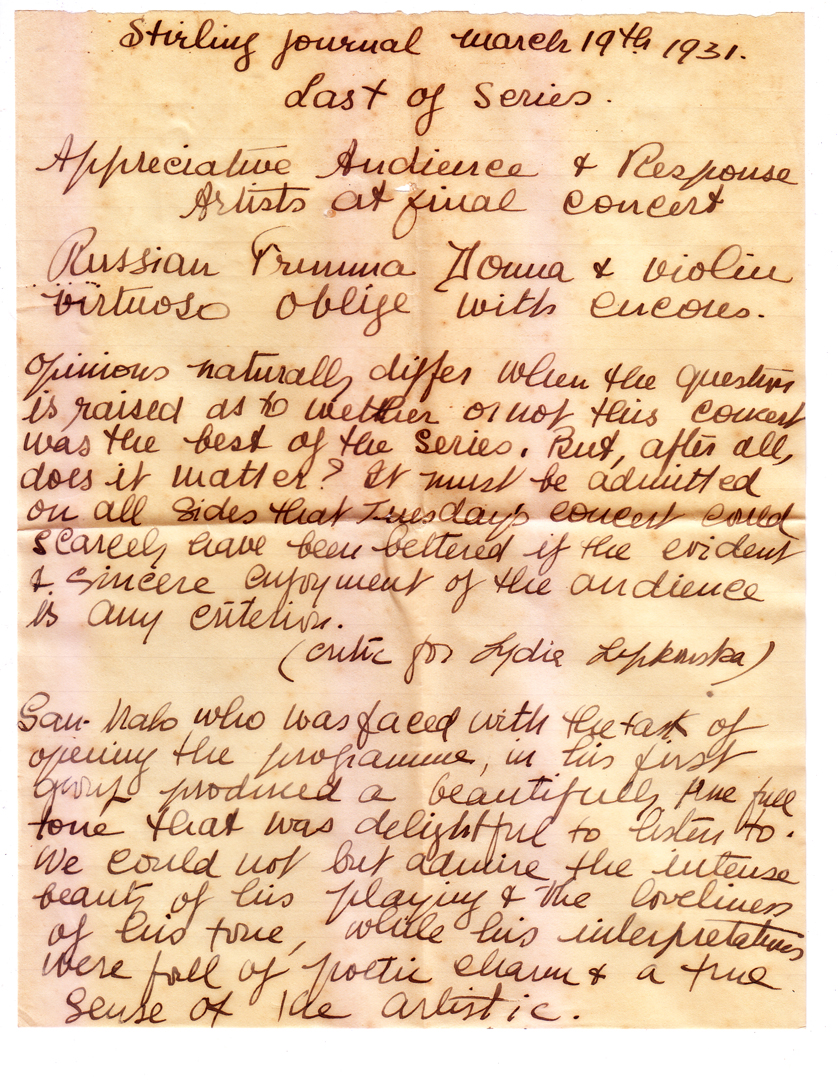 Stirling Journal March 19th 1931.
Last of Series.
Appreciative Audience & Response
Artists at final concert
Russian Primma Donna & violin
virtuoso oblige with encores.
Opinions naturally differ when the question
is raised as to wether or not this concert
was the best of the Series. But, after all,
does it matter? It must be admitted
on all sides that Tuesday's concert could
scarcely have been bettered if the evident
& sincere enjoyment of the audience
is any criterion.
(critic for Lydia Lipkowska)
San-Malo who was faced with the task of
opening the programme, in his first
group produced a beautifully true full
tone that was delightful to listen to.
We could not but admire the intense
beauty of his playing & the loveliness
of his tone, while his interpretations
were full of poetic charm & a true
sense of the artistic.